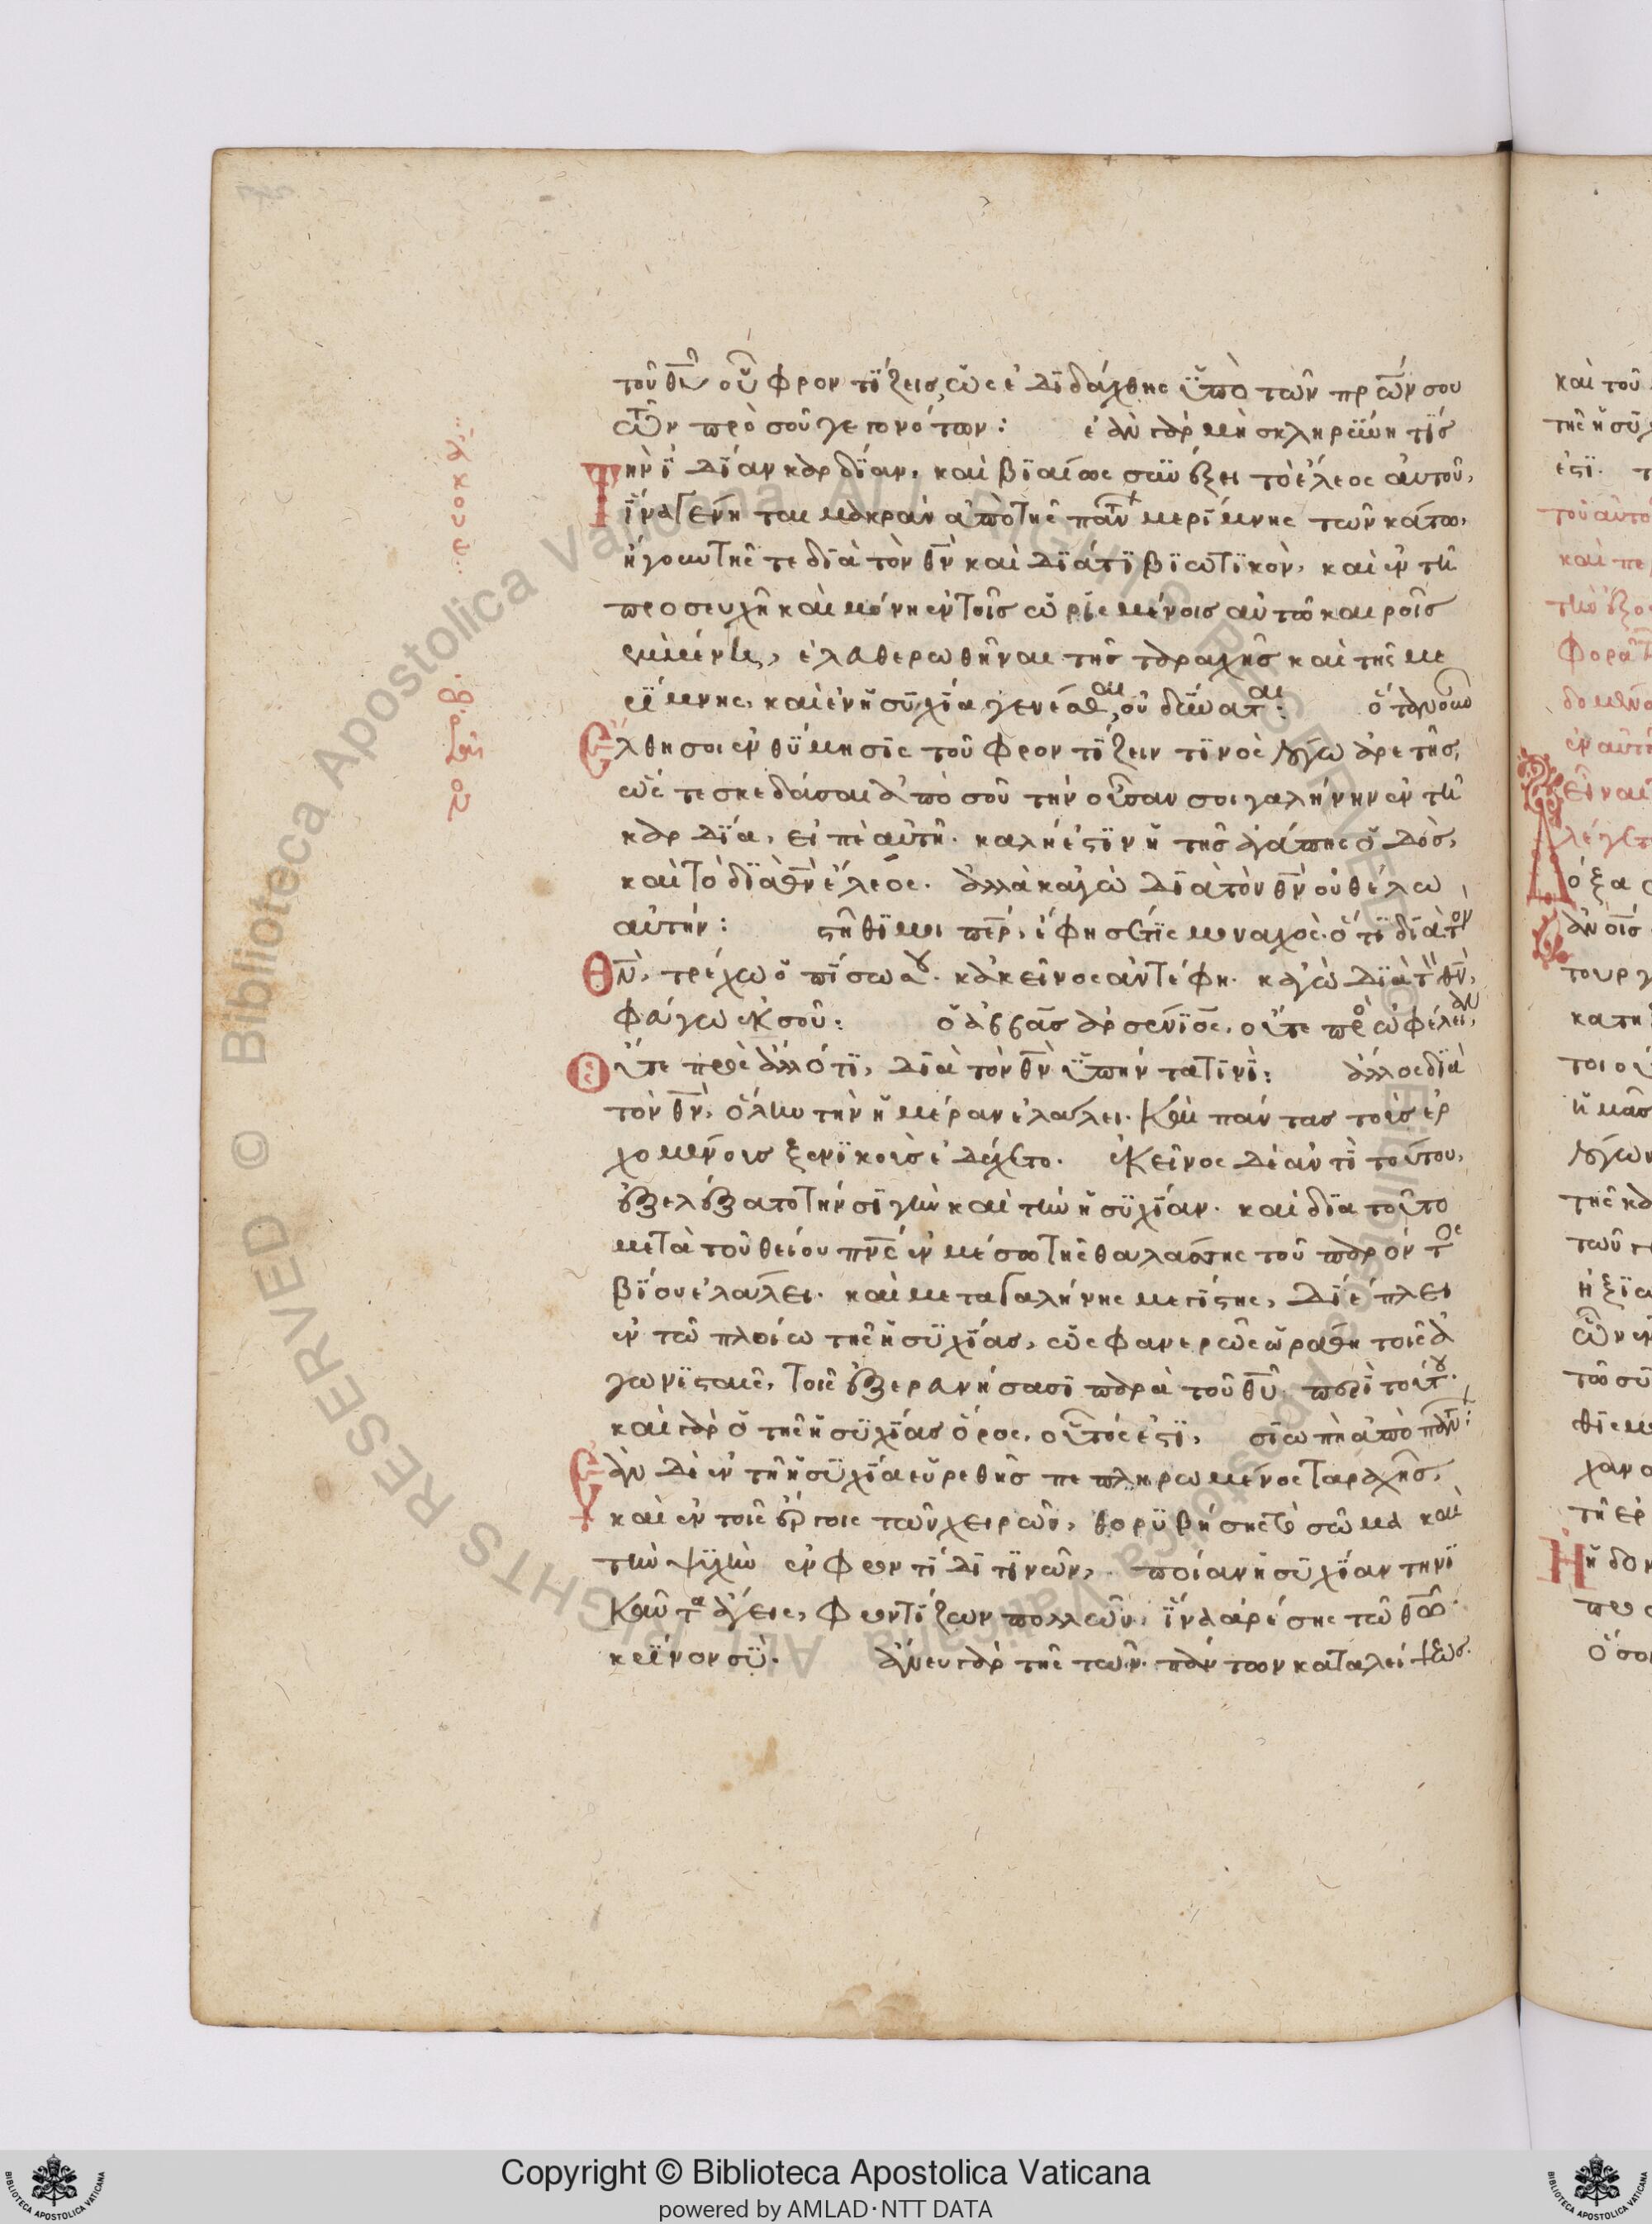 τοῦ θυ οὐ φροντίζεις, ὡς ἐδιδάχθης ὑπὸ τῶν πρων σου
τῶν πρὸ σοῦ γεγονότων: ἐὰν γὰρ μὴ σκληρύνη τίς
τὴν ἰδίαν καρδίαν, καὶ βιαίως συνέξει τὸ ἔλεος αὐτοῦ,
ἵνα γένηται μακρὰν ἀπὸ τῆς παντ μερίμνης τῶν κάτω,
ἤγουν τῆς τε διὰ τὸν θν καὶ διά τι βιωτικὸν, καὶ ἐν τῇ
προσευχῇ καὶ μόνῃ ἐν τοῖς ὡρισμένοις αὐτῶ καιροῖς
ἐμμένει, ἐλευθερωθῆναι τῆς ταραχῆς καὶ τῆς με
ρίμνης, καὶ ἐν ἡσυχία γενέσθαι, οὐ δύναται: ὅταν οὖν
ἔλθη σοι ἐνθύμησις τοῦ φροντίζειν τινὸς λόγω ἀρετῆς,
ὥστε σκεδάσαι ἀπὸ σοῦ τὴν οὖσαν σοι γαλήνην ἐν τῇ
καρδία, εἰπὲ αὐτῇ. καλή ἐστιν ἡ τῆς ἀγάπης ὁδὸς,
καὶ τὸ διὰ θν ἔλεος. ἀλλὰ καγὼ διὰ τὸν θν οὐ θέλω
αὐτήν: στῆθί μοι περ, ἔφησέ τις μοναχός. ὅτι διὰ τὸν
θν, τρέχω ὀπίσω σου. κἀκεῖνος ἀντέφη. καγὼ διὰ τὸν θν,
φεύγω ἐκ σοῦ: ὁ ἀββᾶς ἀρσένιος, οὔτε πρὸς ὠφέλειαν,
οὔτε πρὸς ἄλλό τι, διὰ τὸν θν ὑπήντα τινὶ: ἄλλος διὰ
τὸν θν, ὅλην τὴν ἡμέραν ἐλάλει. καὶ πάντας τοὺς ἐρ
χομένοις ξενικοὺς ἐδέχετο. ἐκεῖνος δὲ ἀντὶ τούτου,
ἐξελέξατο τὴν σιγὴν καὶ τὴν ἡσυχίαν. καὶ διὰ τοῦτο
μετὰ τοῦ θείου πνς ἐν μέσω τῆς θαλάσσης τοῦ παρόντος
βίου ἐλάλει. καὶ μετα γαλήνης μεγίστης, διέπλει
ἐν τῶ πλοίω τῆς ἡσυχίας, ὡς φανερῶς ὡράθη τοῖς ἀ
γωνισταῖς, τοῖς ἐξερευνήσασι παρὰ τοῦ θυ περὶ τούτου.
καὶ γὰρ ὁ τῆς ἡσυχίας ὅρος, οὗτός ἐστι, σιωπὴ ἀπὸ παντ:
Ἐὰν δὲ ἐν τῇ ἡσυχία εὑρεθῇς πεπληρωμένος ταραχῆς,
καὶ ἐν τοῖς ἔργοις τῶν χειρῶν, θορυβήσης τὸ σῶμα καὶ
τὴν ψυχὴν ἐν φροντίδι τινῶν, ποίαν ἡσυχίαν τηνι
καῦτα ἄγεις, φροντίζων πολλῶν, ἵνα ἀρέσης τῶ θω
κρῖνον σὺ. ἄνευ γὰρ τῆς τῶν πάντων καταλείψεως